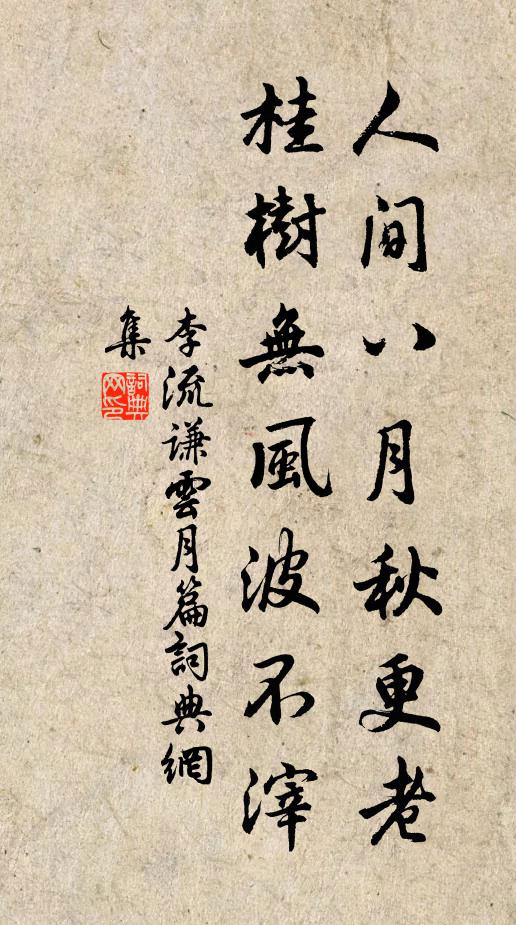 人間八月秋更老
桂樹無風波不滓
李流謙雲月篇詞典網
集
詞典網印